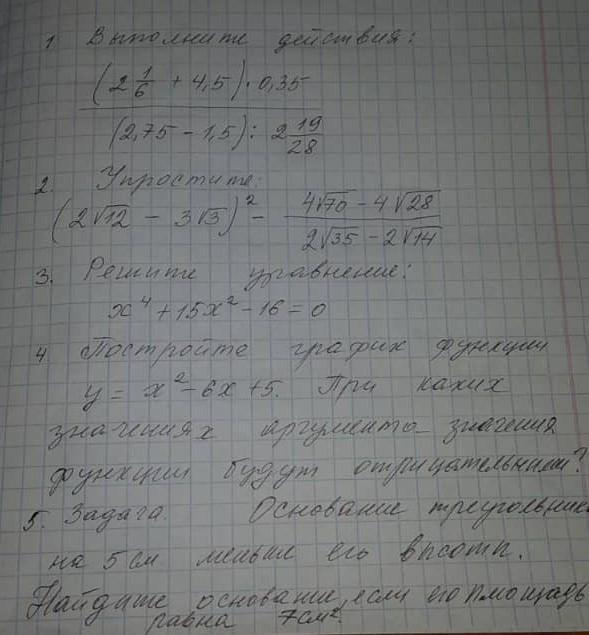 1 Выполните действия:
(2 1/6 + 4,5) · 0,35
(2,75 - 1,5) : 2 19/28
2. Упростите:
(2√12 - 3√3)² - (4√70 - 4√28)/(2√35 - 2√14)
3. Решите уравнение:
x⁴ + 15x² - 16 = 0
4 Постройте график функции
y = x² - 6x + 5. При каких
значениях аргумента значения
функции будут отрицательными?
5. Задача. Основание треугольника
на 5 см меньше его высоты.
Найдите основание, если его площадь
равна 7см².